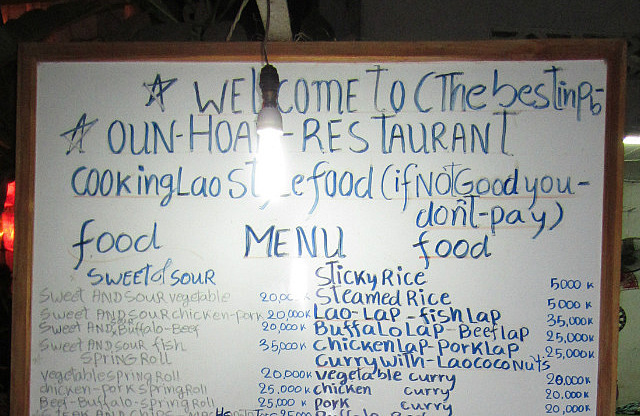 ☆ WELCOME to (The best in Pb-
☆ OUN-HOA -RESTAURANT
COOKing Lao Style food (if NOT Good you-
don't-pay)
food MENU food
SWEET of SOUR
Sweet AND SOUR vegetable 20,00
Sweet AND SOUR chicken-pork 20,000K
Sweet AND Buffalo-Beef 20,000K
Sweet AND SOUR fish 35,000K
SPRING ROLL
vegetable spring Roll 20,000K
chicken-pork spring Roll 25,000K
Beef-Buffalo-spring Roll 25,000K
STEAK AND CHIPS 25000
Sticky Rice 5000 K
Steamed Rice 5000 K
Lao-Lap-fish Lap 35,000K
Buffalo Lap-Beef Lap 25,000K
chicken Lap-Pork Lap 25,000K
Curry With-Lao coco Nut's
vegetable curry 20,000K
chicken curry 20,000K
pork curry 20,000K